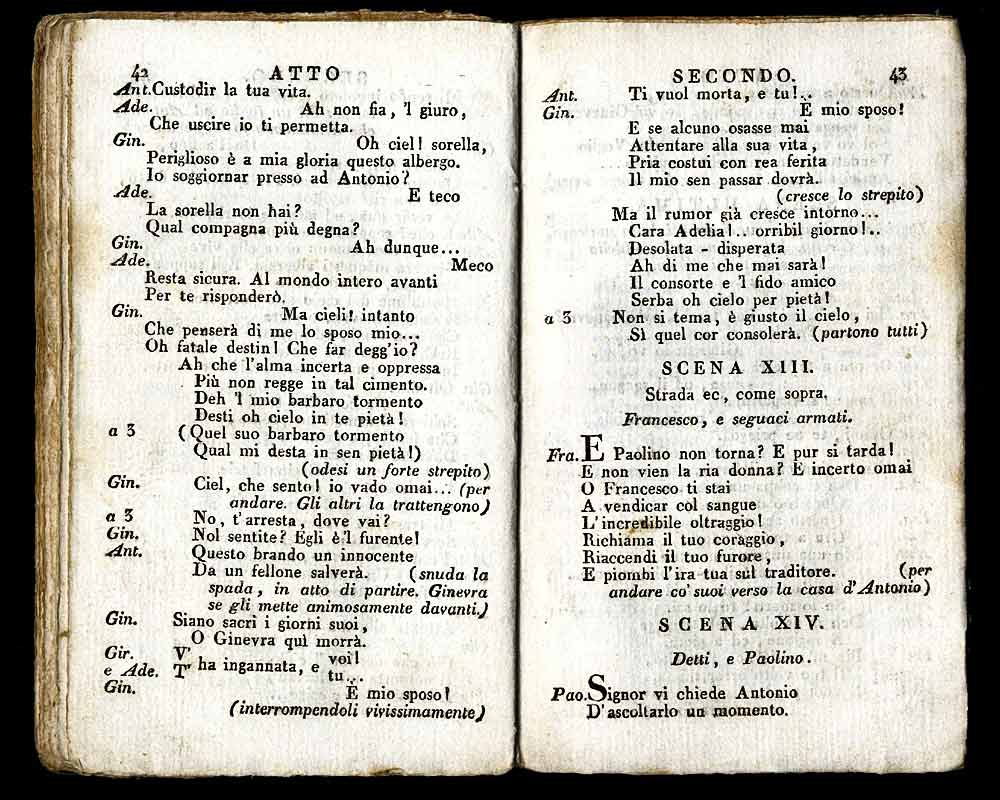 42
ATTO
Ant. Custodir la tua vita.
Ade. Ah non fia, 'l giuro,
Che uscire io ti permetta.
Gin. Oh ciel! sorella,
Periglioso è a mia gloria questo albergo.
Io soggiornar presso ad Antonio?
Ade. E teco
La sorella non hai?
Qual compagna più degna?
Gin. Ah dunque...
Ade. Meco
Resta sicura. Al mondo intero avanti
Per te risponderò.
Gin. Ma cieli! intanto
Che penserà di me lo sposo mio...
Oh fatale destin! Che far degg'io?
Ah che l'alma incerta e oppressa
Più non regge in tal cimento.
Deh 'l mio barbaro tormento
Desti oh cielo in te pietà!
a 3 (Quel suo barbaro tormento
Qual mi desta in sen pietà!)
(odesi un forte strepito)
Gin. Ciel, che sento! io vado omai... (per
andare. Gli altri la trattengono)
a 3 No, t'arresta, dove vai?
Gin. Nol sentite? Egli è 'l furente!
Ant. Questo brando un innocente
Da un fellone salverà. (snuda la
spada, in atto di partire. Ginevra
se gli mette animosamente davanti.)
Gin. Siano sacri i giorni suoi,
O Ginevra quì morrà.
Gir. V' voi!
e Ade. T' ha ingannata, e tu...
Gin. E mio sposo!
(interrompendoli vivissimamente)
SECONDO. 43
Ant. Ti vuol morta, e tu!..
Gin. E mio sposo!
E se alcuno osasse mai
Attentare alla sua vita,
Pria costui con rea ferita
Il mio sen passar dovrà.
(cresce lo strepito)
Ma il rumor già cresce intorno...
Cara Adelia!.. orribil giorno!..
Desolata - disperata
Ah di me che mai sarà!
Il consorte e 'l fido amico
Serba oh cielo per pietà!
a 3 Non si tema, è giusto il cielo,
Sì quel cor consolerà. (partono tutti)
SCENA XIII.
Strada ec, come sopra.
Francesco, e seguaci armati.
Fra. E Paolino non torna? E pur si tarda!
E non vien la ria donna? E incerto omai
O Francesco ti stai
A vendicar col sangue
L'incredibile oltraggio!
Richiama il tuo coraggio,
Riaccendi il tuo furore,
E piombi l'ira tua sul traditore. (per
andare co' suoi verso la casa d'Antonio)
SCENA XIV.
Detti, e Paolino.
Pao. Signor vi chiede Antonio
D'ascoltarlo un momento.